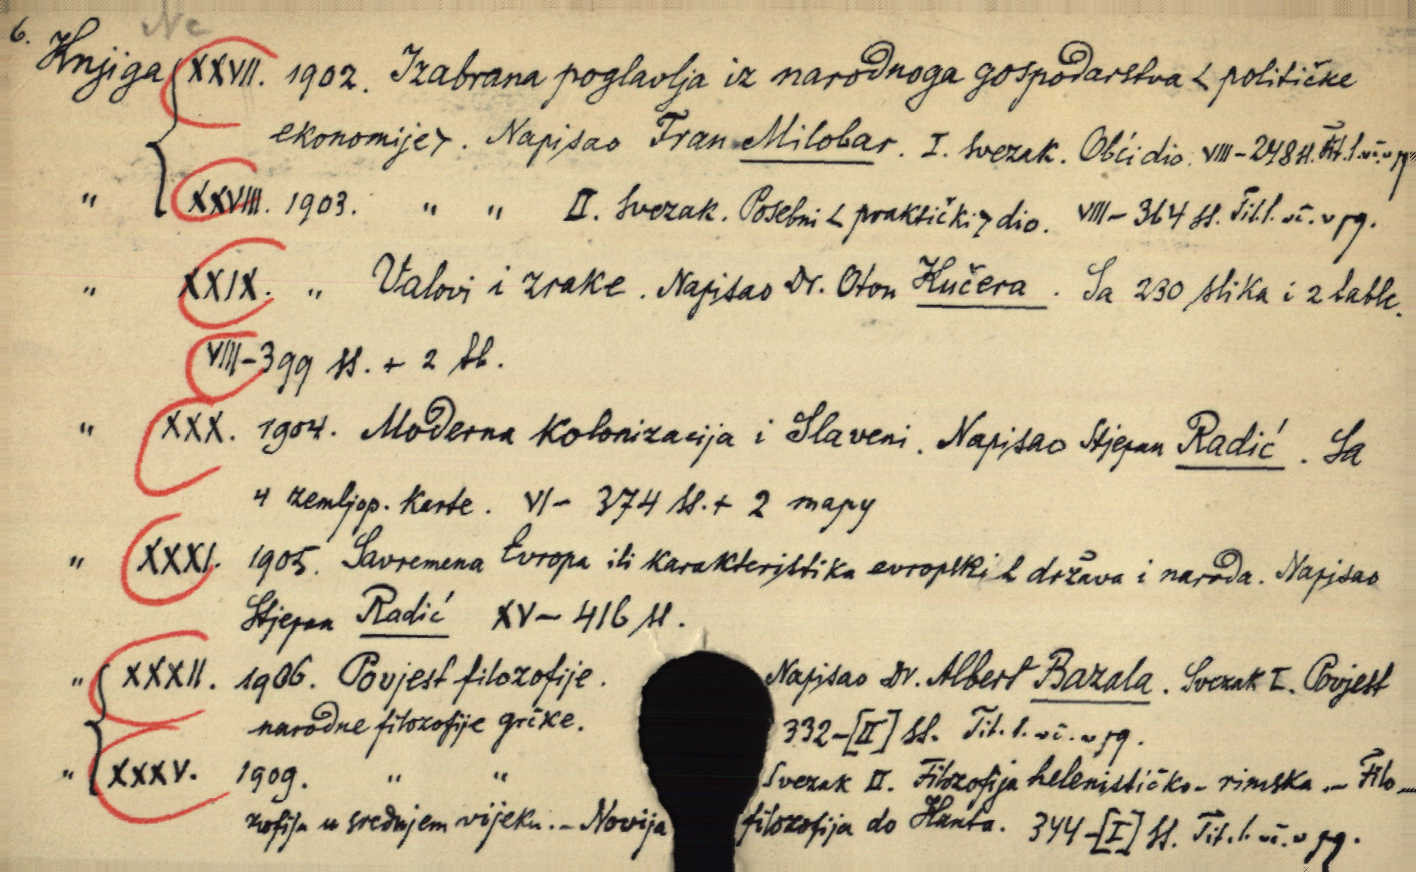 6.
Knjiga XXVII. 1902. Izabrana poglavlja iz narodnoga gospodarstva < političke
ekonomije>. Napisao Fran Milobar. I. svezak. Obći dio. VIII-248 ss. Tit. l. uč. u pg.
" XXVIII. 1903. " " II. Svezak. Posebni < praktički> dio. VIII-364 ss. Tit. l. uč. u pg.
" XXIX. " Valovi i zrake. Napisao Dr. Oton Kučera. Sa 230 slika i 2 table.
VIII-399 ss. + 2 tb.
" XXX. 1904. Moderna kolonizacija i Slaveni. Napisao Stjepan Radić. Sa
4 zemljop. karte. VI- 374 ss. + 2 mapy
" XXXI. 1905. Savremena Evropa ili karakteristika evropskih država i naroda. Napisao
Stjepan Radić XV- 416 ss.
" XXXII. 1906. Povjest filozofije. Napisao Dr. Albert Bazala. Svezak I. Povjest
narodne filozofije grčke. 332-[II] ss. Tit. l. uč. u pg.
" XXXV. 1909. " " Svezak II. Filozofija helenističko-rimska.- Filo-
zofija u srednjem vijeku.- Novija filozofija do Kanta. 344-[I] ss. Tit. l. uč. u pg.